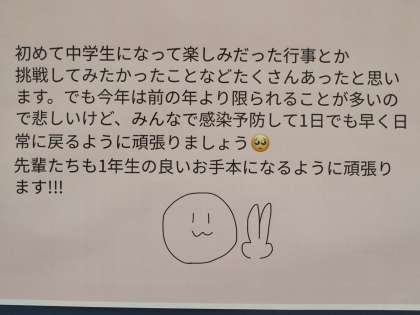 初めて中学生になって楽しみだった行事とか
挑戦してみたかったことなどたくさんあったと思い
ます。でも今年は前の年より限られることが多いの
で悲しいけど、みんなで感染予防して1日でも早く日
常に戻るように頑張りましょう🥺
先輩たちも1年生の良いお手本になるように頑張り
ます!!!